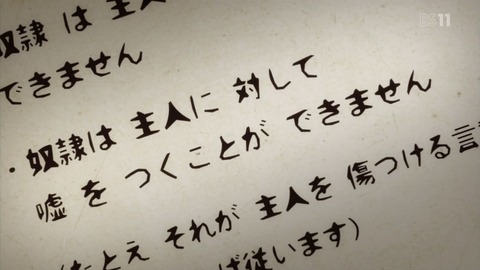 BS11
奴隷 は 主人
できません
・奴隷は 主人に 対して
嘘 を つくことが できません
(たとえ それが 主人を 傷つける言
ば従います)